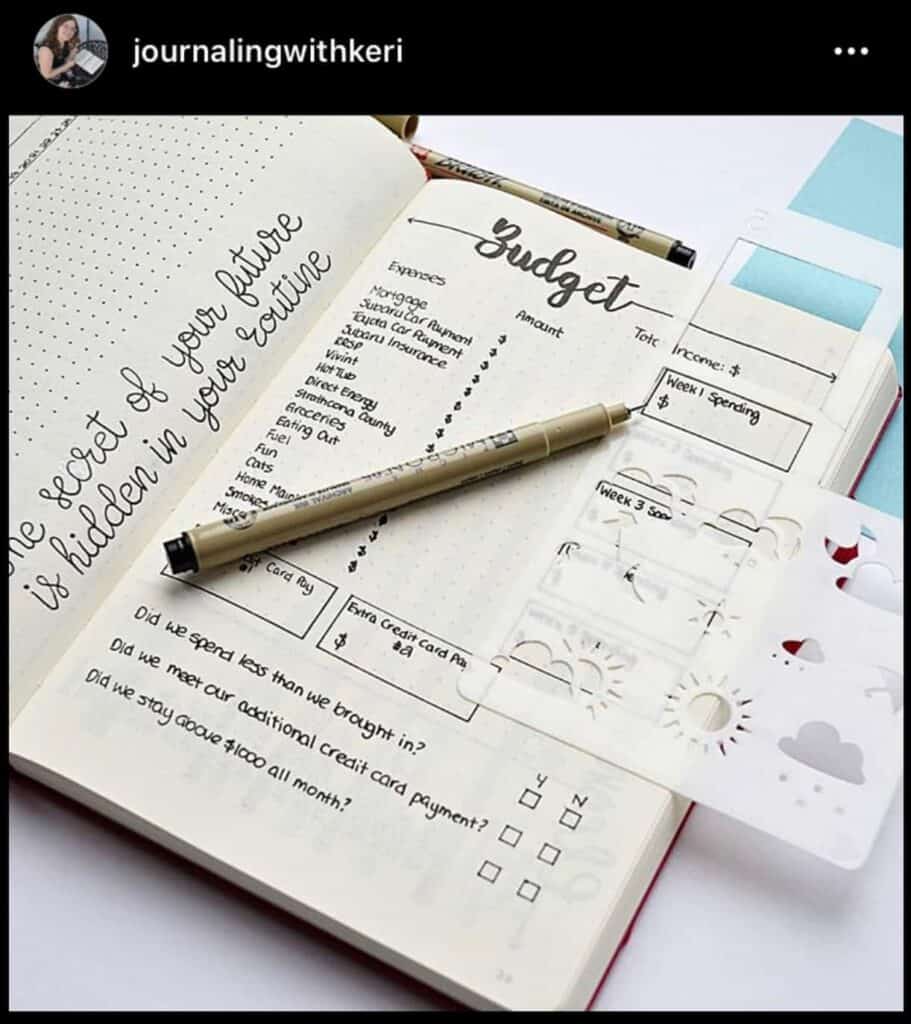 journalingwithkeri
The secret of your future
is hidden in your routine
Budget
Expenses
Amount
Income: $
Mortgage
Subaru Car Payment
Toyota Car Payment
Subaru Insurance
RRSP
Vivint
Hot Tub
Direct Energy
Strathcona County
Groceries
Eating Out
Fuel
Fun
Cats
Home
Smokes
$
$
$
$
$
$
$
$
$
$
$
$
$
Week 1 Spending
$
Week 3
Card Pay
#1
Extra Credit Card
#2
$
Did we spend less than we brought in?
Did we meet our additional credit card payment?
Did we stay above $1000 all month?
Y N